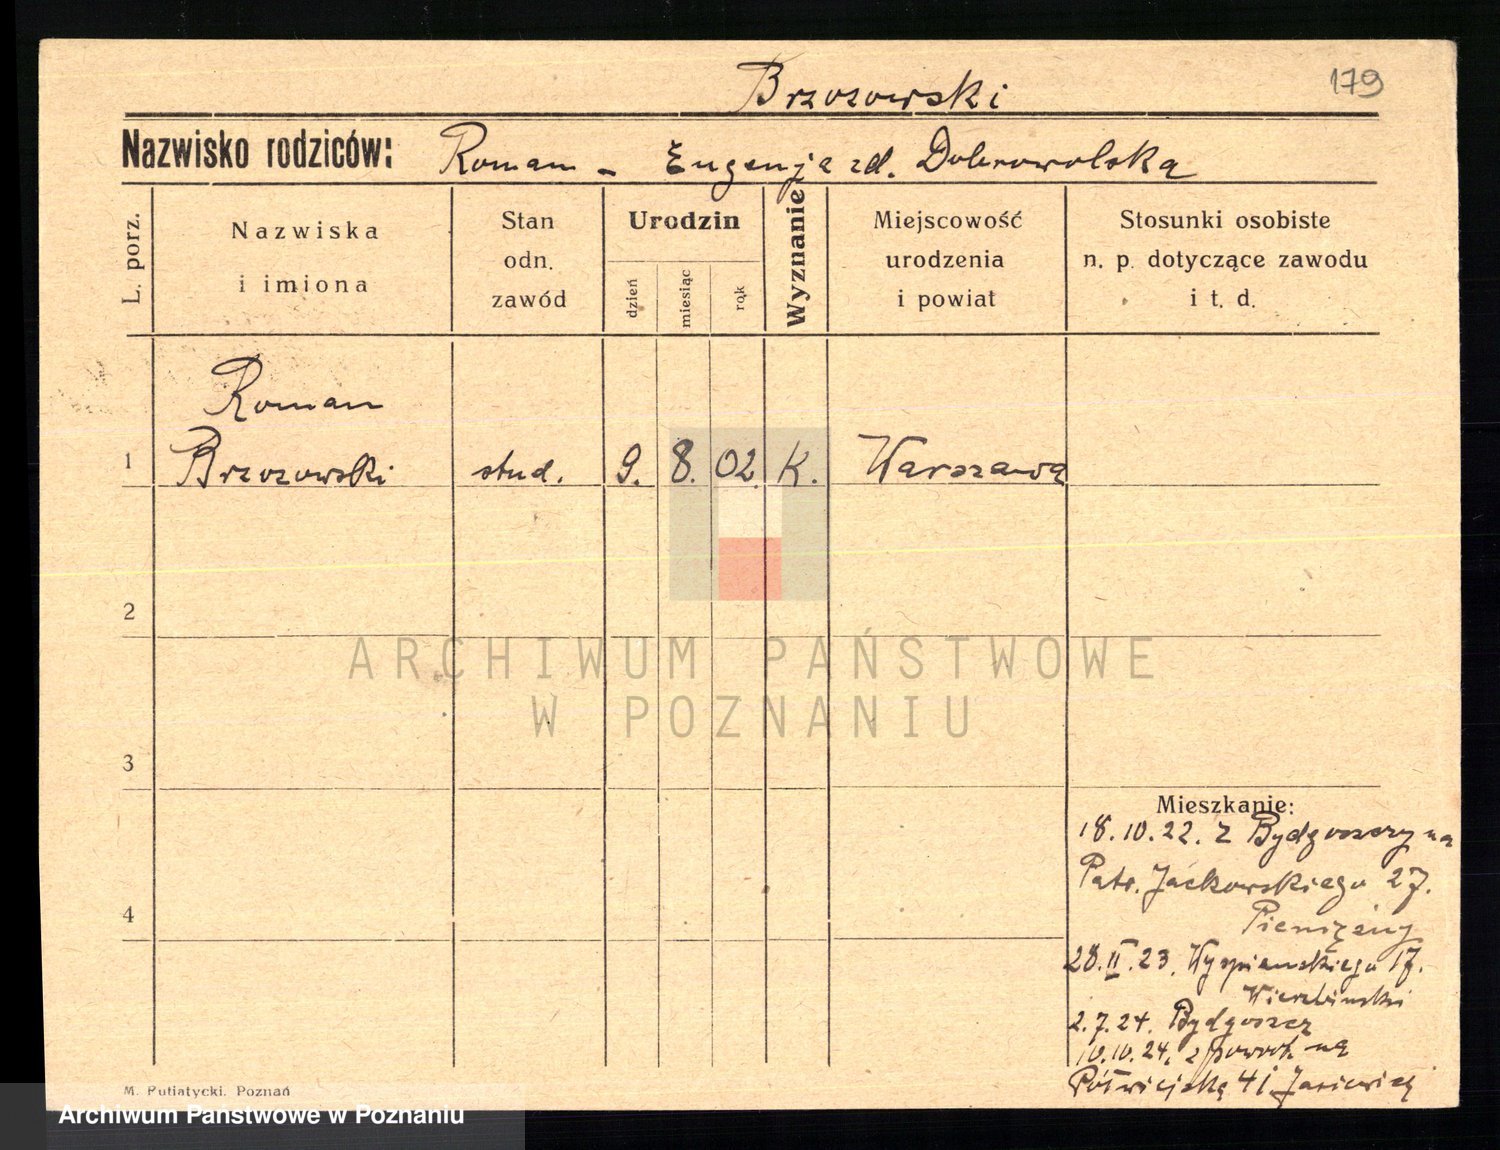 179
Brzozowski
Nazwisko rodziców: Roman - Eugenja zd. Dobrowolska
L. porz.
Nazwiska
i imiona
Stan
odn.
zawód
Urodzin
dzień
miesiąc
rok
Wyznanie
Miejscowość
urodzenia
i powiat
Stosunki osobiste
n. p. dotyczące zawodu
i t. d.
Roman
1 Brzozowski stud. 9. 8. 02. K. Warszawa
2
ARCHIWUM PAŃSTWOWE
W POZNANIU
3
4
Mieszkanie:
18.10.22. z Bydgoszczy na
Patr. Jackowskiego 27.
Pieniężny
28.II.23. Wyspiańskiego 17.
Wierzbinski
2.7.24. Bydgoszcz
10.10.24. z powrot. na
Półwiejską 41
M. Putiatycki. Poznań
Archiwum Państwowe w Poznaniu